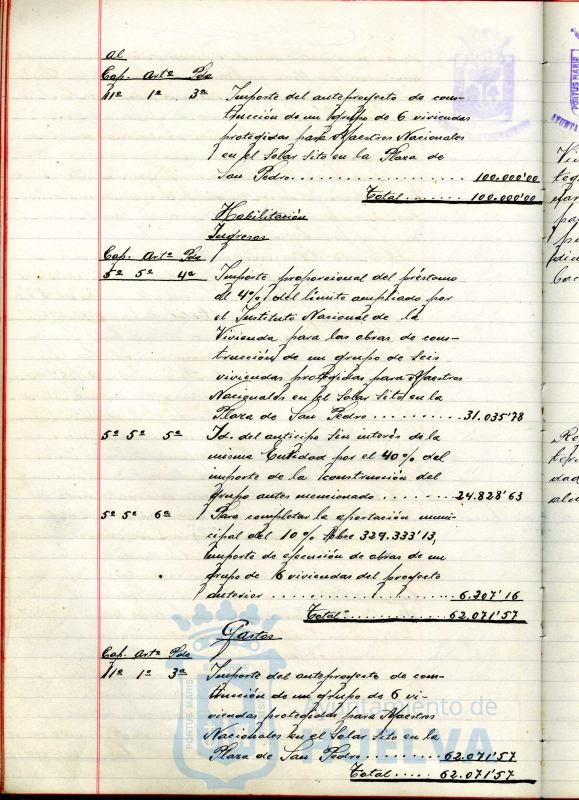 al
Cap. Artº Pda
11º 1º 3ª Importe del anteproyecto de cons-
trucción de un Grupo de 6 viviendas
protegidas para Maestros Nacionales
en el Solar Sito en la Plaza de
San Pedro................ 100.000'00
Total....... 100.000'00
Habilitación
Ingresos
Cap. Artº Pda
5º 5º 4ª Importe proporcional del préstamo
al 4% del límite ampliado por
el Instituto Nacional de la
Vivienda para las obras de cons-
trucción de un grupo de seis
viviendas protegidas para Maestros
Nacionales en el Solar Sito en la
Plaza de San Pedro.......... 31.035'78
5º 5º 5ª Id. del anticipo sin interés de la
misma Entidad por el 40% del
importe de la construcción del
grupo antes mencionado........ 24.828'63
5º 5º 6ª Para completar la aportación muni-
cipal del 10% sobre 329.333'13,
importe de ejecución de obras de un
grupo de 6 viviendas del proyecto
anterior.................. 6.207'16
Total............. 62.071'57
Gastos
Cap. Artº Pda
11º 1º 3ª Importe del anteproyecto de cons-
trucción de un grupo de 6 vi-
viendas protegidas para Maestros
Nacionales en el Solar Sito en la
Plaza de San Pedro......... 62.071'57
Total..... 62.071'57
PORTUS MARIS
Ayuntamiento de
HUELVA
PORTUS MARIS